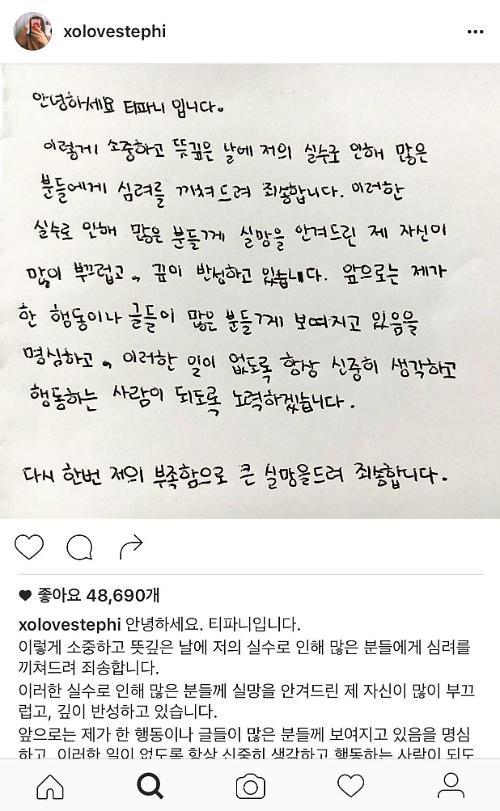 xolovestephi
안녕하세요 티파니 입니다.
이렇게 소중하고 뜻깊은 날에 저의 실수로 인해 많은
분들에게 심려를 끼쳐드려 죄송합니다. 이러한
실수로 인해 많은 분들께 실망을 안겨드린 제 자신이
많이 부끄럽고, 깊이 반성하고 있습니다. 앞으로는 제가
한 행동이나 글들이 많은 분들께 보여지고 있음을
명심하고, 이러한 일이 없도록 항상 신중히 생각하고
행동하는 사람이 되도록 노력하겠습니다.
다시 한번 저의 부족함으로 큰 실망을드려 죄송합니다.
좋아요 48,690개
xolovestephi 안녕하세요. 티파니입니다.
이렇게 소중하고 뜻깊은 날에 저의 실수로 인해 많은 분들에게 심려를
끼쳐드려 죄송합니다.
이러한 실수로 인해 많은 분들께 실망을 안겨드린 제 자신이 많이 부끄
럽고, 깊이 반성하고 있습니다.
앞으로는 제가 한 행동이나 글들이 많은 분들께 보여지고 있음을 명심
하고, 이러한 일이 없도록 항상 신중히 생각하고 행동하는 사람이 되도